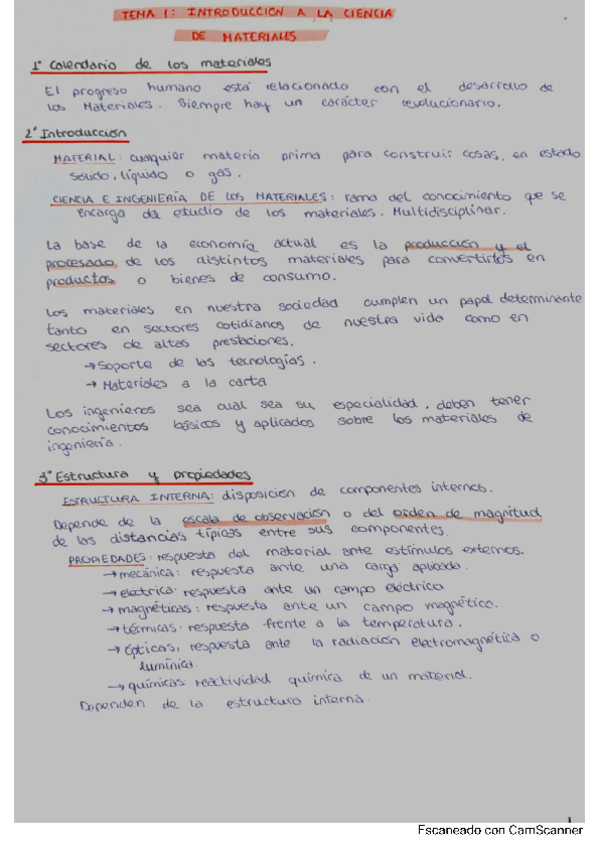 TEMA 1: INTRODUCCIÓN A LA CIENCIA
DE MATERIALES
1º Calendario de los materiales
El progreso humano está relacionado con el desarrollo de
los Materiales. Siempre hay un carácter revolucionario.
2º Introducción
MATERIAL: cualquier materia prima para construir cosas, en estado
sólido, líquido o gas.
CIENCIA E INGENIERÍA DE LOS MATERIALES: rama del conocimiento que se
encarga del estudio de los materiales. Multidisciplinar.
La base de la economía actual es la producción y el
procesado de los distintos materiales para convertirlos en
productos o bienes de consumo.
Los materiales en nuestra sociedad cumplen un papel determinante
tanto en sectores cotidianos de nuestra vida como en
sectores de altas prestaciones.
→ Soporte de las tecnologías.
→ Materiales a la carta
Los ingenieros sea cual sea su especialidad, deben tener
conocimientos básicos y aplicados sobre los materiales de
ingeniería.
3º Estructura y propiedades
ESTRUCTURA INTERNA: disposición de componentes internos.
Depende de la escala de observación o del orden de magnitud
de las distancias típicas entre sus componentes.
PROPIEDADES: respuesta del material ante estímulos externos.
→ mecánica: respuesta ante una carga aplicada.
→ eléctrica: respuesta ante un campo eléctrico
→ magnéticas: respuesta ante un campo magnético.
→ térmicas: respuesta frente a la temperatura.
→ ópticas, respuesta ante la radiación electromagnética o
lumínica.
→ químicas reactividad química de un material.
Dependen de la estructura interna.
1
Escaneado con CamScanner